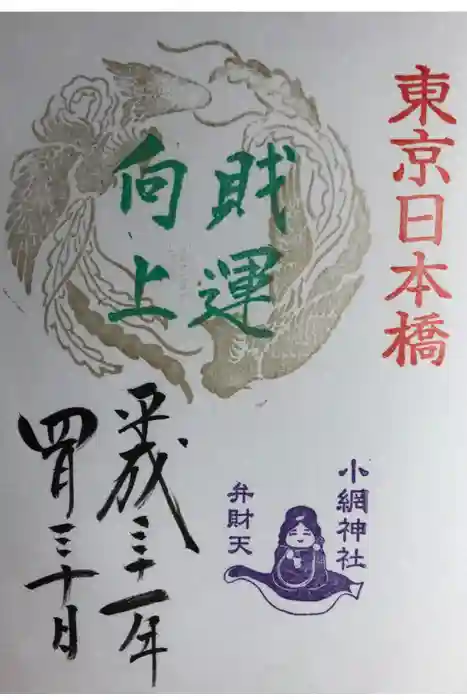 東京日本橋
財運
向上
平成三十一年
四月三十日
小網神社
弁財天